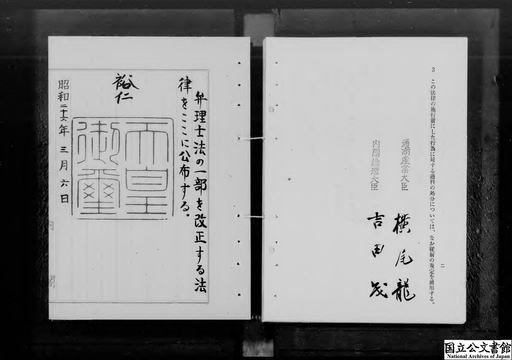 3 この法律の施行前にした行為に対する過料の処分については、なお従前の規定を適用する。
二
通商産業大臣 横尾龍
内閣総理大臣 吉田茂
弁理士法の一部を改正する法
律をここに公布する。
裕仁
天皇
御璽
昭和廿六年三月六日
内閣
国立公文書館
National Archives of Japan